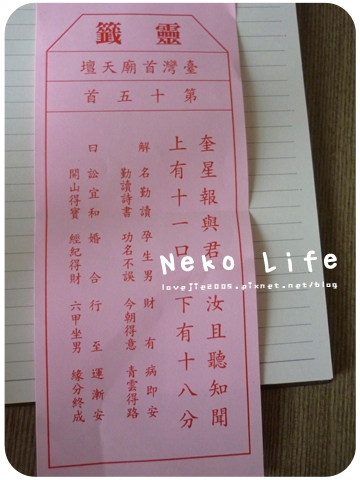 靈籤
臺灣首廟天壇
第十五首
奎星報與君 汝且聽知聞
上有十一口 下有十八分
解 名勤讀 孕生男 財有 病即安
勤讀詩書 功名不誤 今朝得意 青雲得路
曰 訟宜和 婚合 行至 運漸安
開山得寶 經紀得財 六甲坐男 緣分終成
Neko Life
lovejie2005.pixnet.net/blog